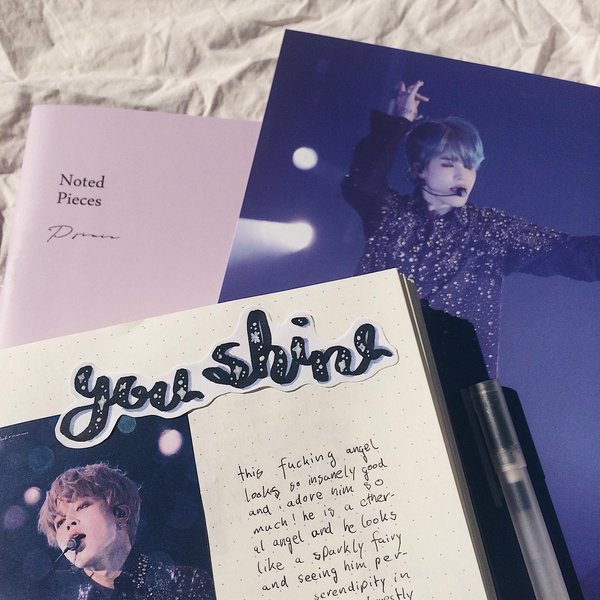 Noted
Pieces
you shine
this fucking angel
looks so insanely good
and i adore him so
much! he is a ether-
al angel and he looks
like a sparkly fairy
and seeing him per-
serendipity in